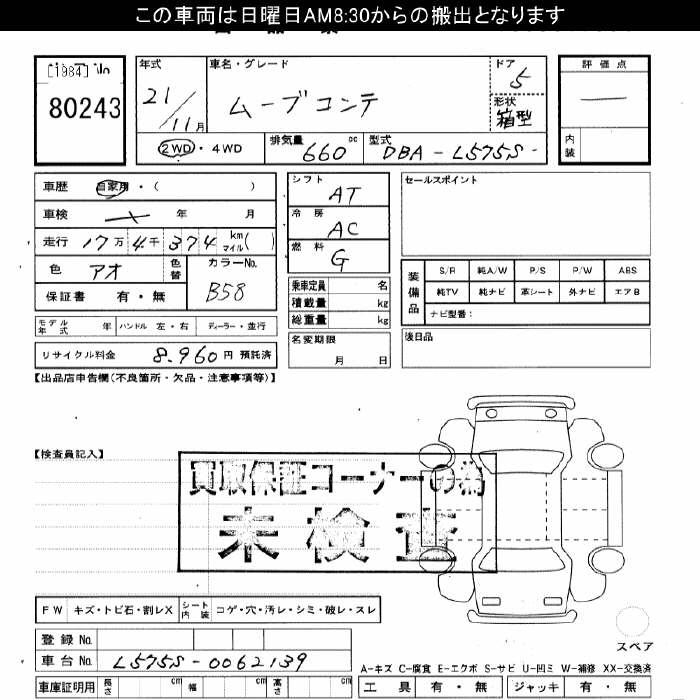 この車両は日曜日AM8:30からの搬出となります
[1984] No
80243
年式
21/11月
車名・グレード
ムーブコンテ
ドア
5
形状
箱型
評価点
―
内装
2WD ・ 4WD
排気量
660 cc
型式
DBA - L575S -
車歴 自家用 ・ ( )
車検 年 月
走行 17万 4千 374 km マイル ( )
色 アオ 色替
カラーNo.
B58
保証書 有・無
モデル年式 年 ハンドル 左・右 ディーラー・並行
リサイクル料金 8,960 円 預託済
シフト
AT
冷房
AC
燃料
G
乗車定員 名
積載量 kg
総重量 kg
名変期限
月 日
セールスポイント
装備品
S/R 純A/W P/S P/W ABS
純TV 純ナビ 革シート 外ナビ エアB
ナビ型番:
後日品
【出品店申告欄(不良箇所・欠品・注意事項等)】
【検査員記入】
買取保証コーナーの為
未検査
FW キズ・トビ石・割レX シート内装 コゲ・穴・汚レ・シミ・破レ・スレ
登録No.
車台No. L575S-0062139
車庫証明用 長さ cm 幅 cm 高さ cm
スペア
A-キズ C-腐食 E-エクボ S-サビ U-凹ミ W-補修 XX-交換済
工具 有・無 ジャッキ 有・無